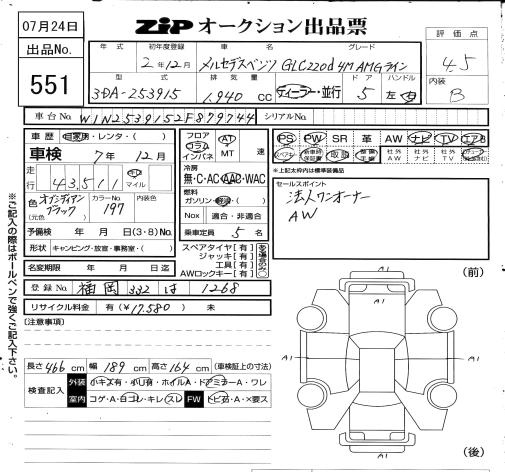 07月24日
出品No.
551
ZIP オークション出品票
年式 初年度登録 車名 グレード
2年12月 メルセデスベンツ GLC220d 4M AMGライン
型式 排気量 ドア ハンドル
3DA-253915 1.940 cc ディーラー・並行 5 左・右
評価点
4.5
内装
B
車台No. W1N2539152F879744 シリアルNo.
車歴 自家用・レンタ・( )
車検 7年 12月
走行 43,511 キロ マイル
色 オブシディアンブラック
(元色)
カラーNo. 197
内装色
予備検 年 月 日(3・8)No.
形状 キャンピング・放室・事務室・( )
名変期限 年 月 日迄
フロア コラム インパネ AT MT 速
冷房
無・C・AC・AAC・WAC
燃料
ガソリン・軽油・( )
Nox 適合・非適合
乗車定員 5 名
スペアタイヤ【有】
ジャッキ【有】
工具【有】
AWロックキー【有】
PS PW SR 革 AW ナビ TV エアB
スペアキー 新車時保証書 取説 整備手帳 社外AW 社外ナビ 社外TV
※上記○文字は標準装備品
セールスポイント
法人ワンオーナー
AW
登録No. 福岡 332 は 1268
リサイクル料金 有(¥17.580) 未
[注意事項]
長さ 466 cm 幅 189 cm 高さ 164 cm (車検証上の寸法)
検査記入 外装 小キズ有・小凹有・ホイルA・ドアミラーA・ワレ
室内 コゲ・A・ヨゴレ・キレ・スレ FW トビ石・A・×要ス
※ご記入の際はボールペンで強くご記入下さい。
(前)
A1
A1
A1
A1
(後)